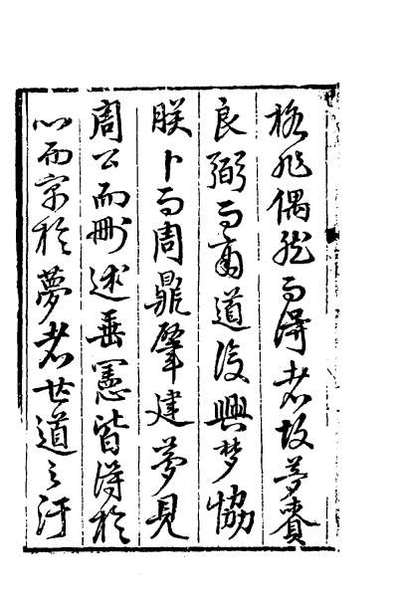 格非偶然而得者故夢賚
良弼而商道復興梦恊
朕卜而周鼎肇建夢見
周公而刪述垂憲皆得於
心而宗於夢者世道之汙